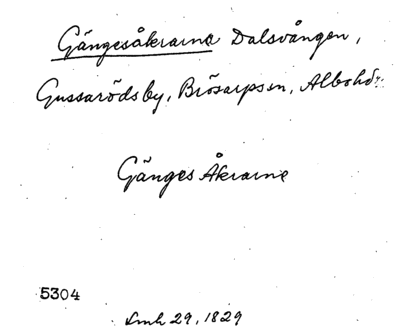 Gängesåkrarne Dalsvången,
Gussarödsby, Brösarpssn, Albohd:
Gänges Åkrarne
5304
Lmh 29, 1829